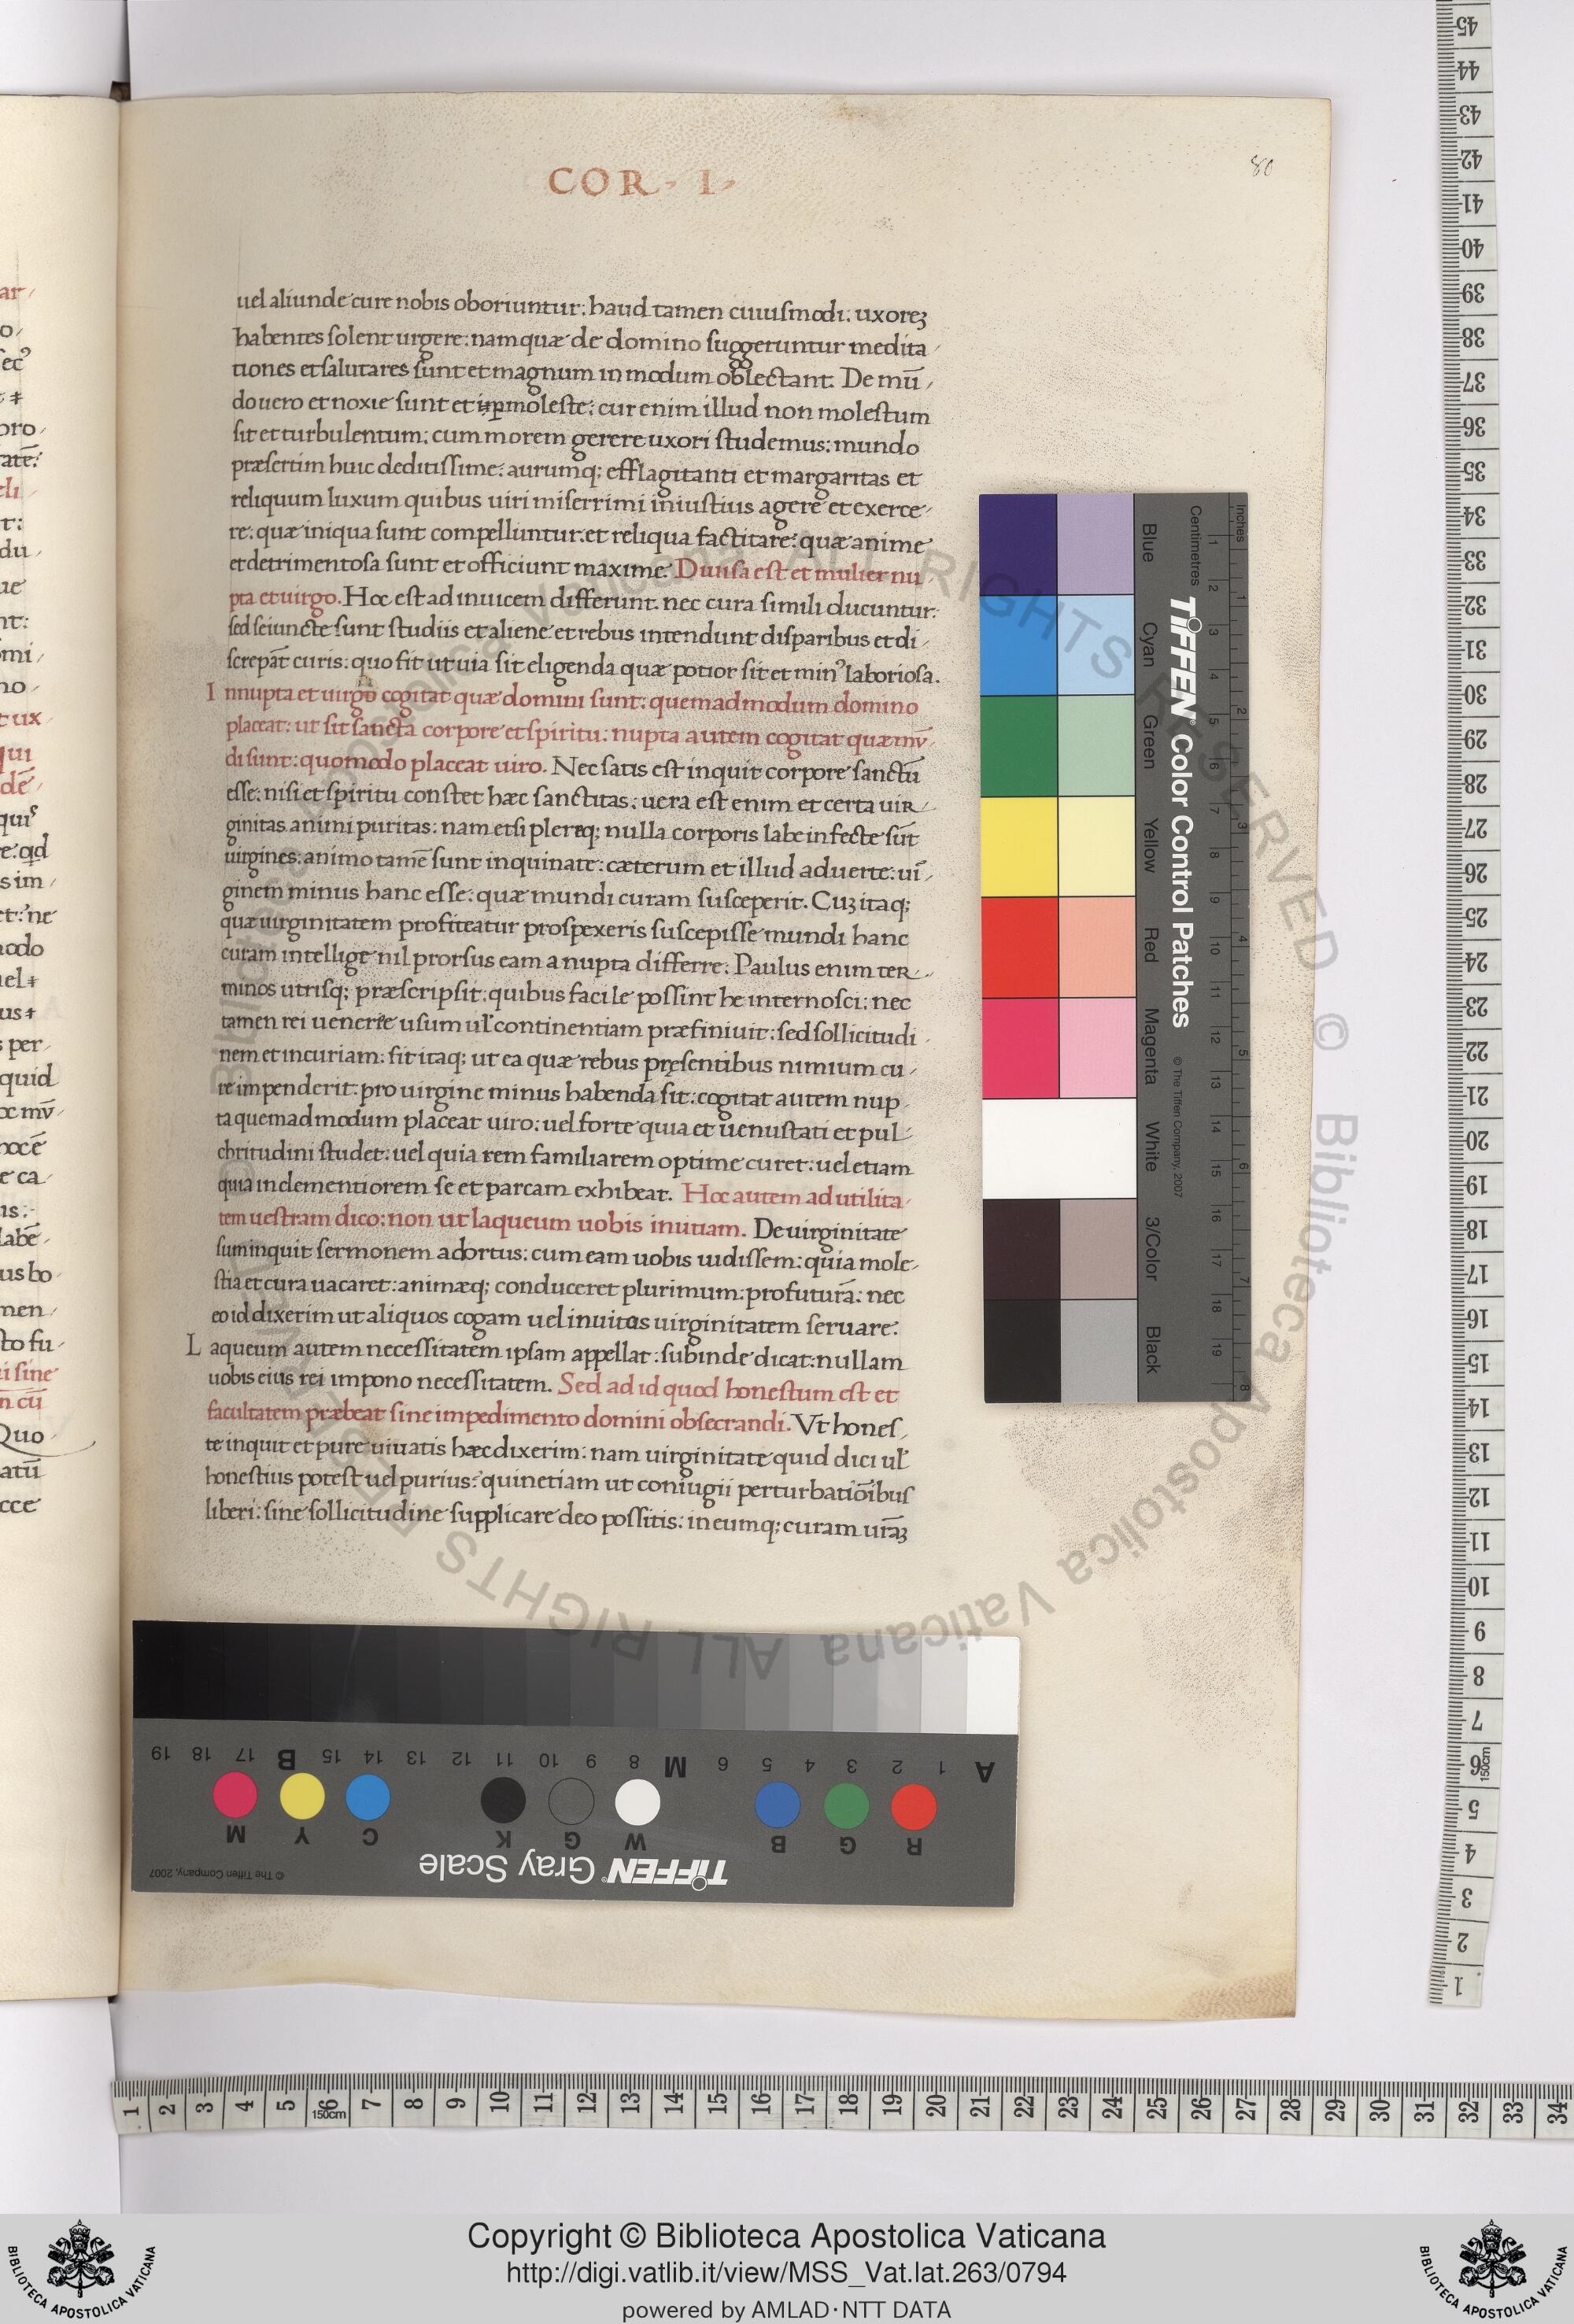 COR · I ·
80
uel aliunde cure nobis oboriuntur: haud tamen cuiusmodi: uxoreȝ
habentes solent urgere: nam quæ de domino suggeruntur medita
tiones et salutares sunt et magnum in modum oblectant. De mū
do uero et noxie sunt et moleste: cur enim illud non molestum
sit et turbulentum: cum morem gerere uxori studemus: mundo
præsertim huic deditissime: aurumq; efflagitanti et margaritas et
reliquum luxum quibus uiri miserrimi iniustius agere et exerce
re: quæ iniqua sunt compelluntur: et reliqua factitare: quæ anime
et detrimentosa sunt et officiunt maxime. Diuisa est et mulier nu
pta et uirgo. Hoc est ad inuicem differunt. nec cura simili ducuntur:
sed seiuncte sunt studiis et aliene et rebus intendunt disparibus et di
screpāt curis: quo fit ut uia sit eligenda quæ potior sit et minꝰ laboriosa.
Innupta et uirgo cogitat quæ domini sunt: quemadmodum domino
placeat: ut sit sancta corpore et spiritu: nupta autem cogitat quæ mū
di sunt: quomodo placeat uiro. Nec satis est inquit corpore sanctū
esse: nisi et spiritu constet hæc sanctitas: uera est enim et certa uir
ginitas animi puritas: nam etsi pleræq; nulla corporis labe infecte sūt
uirgines: animo tamē sunt inquinate: cæterum et illud aduerte: ui
ginem minus hanc esse: quæ mundi curam susceperit. Cuȝ itaq;
quæ uirginitatem profiteatur prospexeris suscepisse mundi hanc
curam intellige nil prorsus eam a nupta differre: Paulus enim ter
minos utrisq; præscripsit: quibus facile possint he internosci: nec
tamen rei uenerie usum ul̄ continentiam præfiniuit: sed sollicitudi
nem et incuriam: sit itaq; ut ea quæ rebus pręsentibus nimium cu
re impenderit: pro uirgine minus habenda sit: cogitat autem nup
ta quemadmodum placeat uiro: uel forte quia et uenustati et pul
chritudini studet: uel quia rem familiarem optime curet: uel etiam
quia inclementiorem se et parcam exhibeat. Hoc autem ad utilita
tem uestram dico: non ut laqueum uobis iniitiam. De uirginitate
sum inquit sermonem adortus: cum eam uobis uidissem: quia mole
stia et cura uacaret: animæq; conduceret plurimum: profuturā: nec
eo id dixerim ut aliquos cogam uel inuitos uirginitatem seruare:
Laqueum autem necessitatem ipsam appellat: subinde dicat: nullam
uobis eius rei impono necessitatem. Sed ad id quod honestum est et
facultatem præbeat sine impedimento domini obsecrandi. Vt hones
te inquit et pure uiuatis hæc dixerim: nam uirginitate quid dici ul̄
honestius potest uel purius: quinetiam ut coniugii perturbatiōibus
liberi: sine sollicitudine supplicare deo possitis: in eumq; curam ur̄aȝ
Inches
Centimetres
TIFFEN® Color Control Patches
© The Tiffen Company, 2007
Blue
Cyan
Green
Yellow
Red
Magenta
White
3/Color
Black
TIFFEN® Gray Scale
© The Tiffen Company, 2007
R G B W G K C Y M
A 1 2 3 4 5 6 M 8 9 10 11 12 13 14 15 B 17 18 19
Copyright © Biblioteca Apostolica Vaticana
http://digi.vatlib.it/view/MSS_Vat.lat.263/0794
powered by AMLAD·NTT DATA
BIBLIOTECA APOSTOLICA VATICANA
BIBLIOTECA APOSTOLICA VATICANA